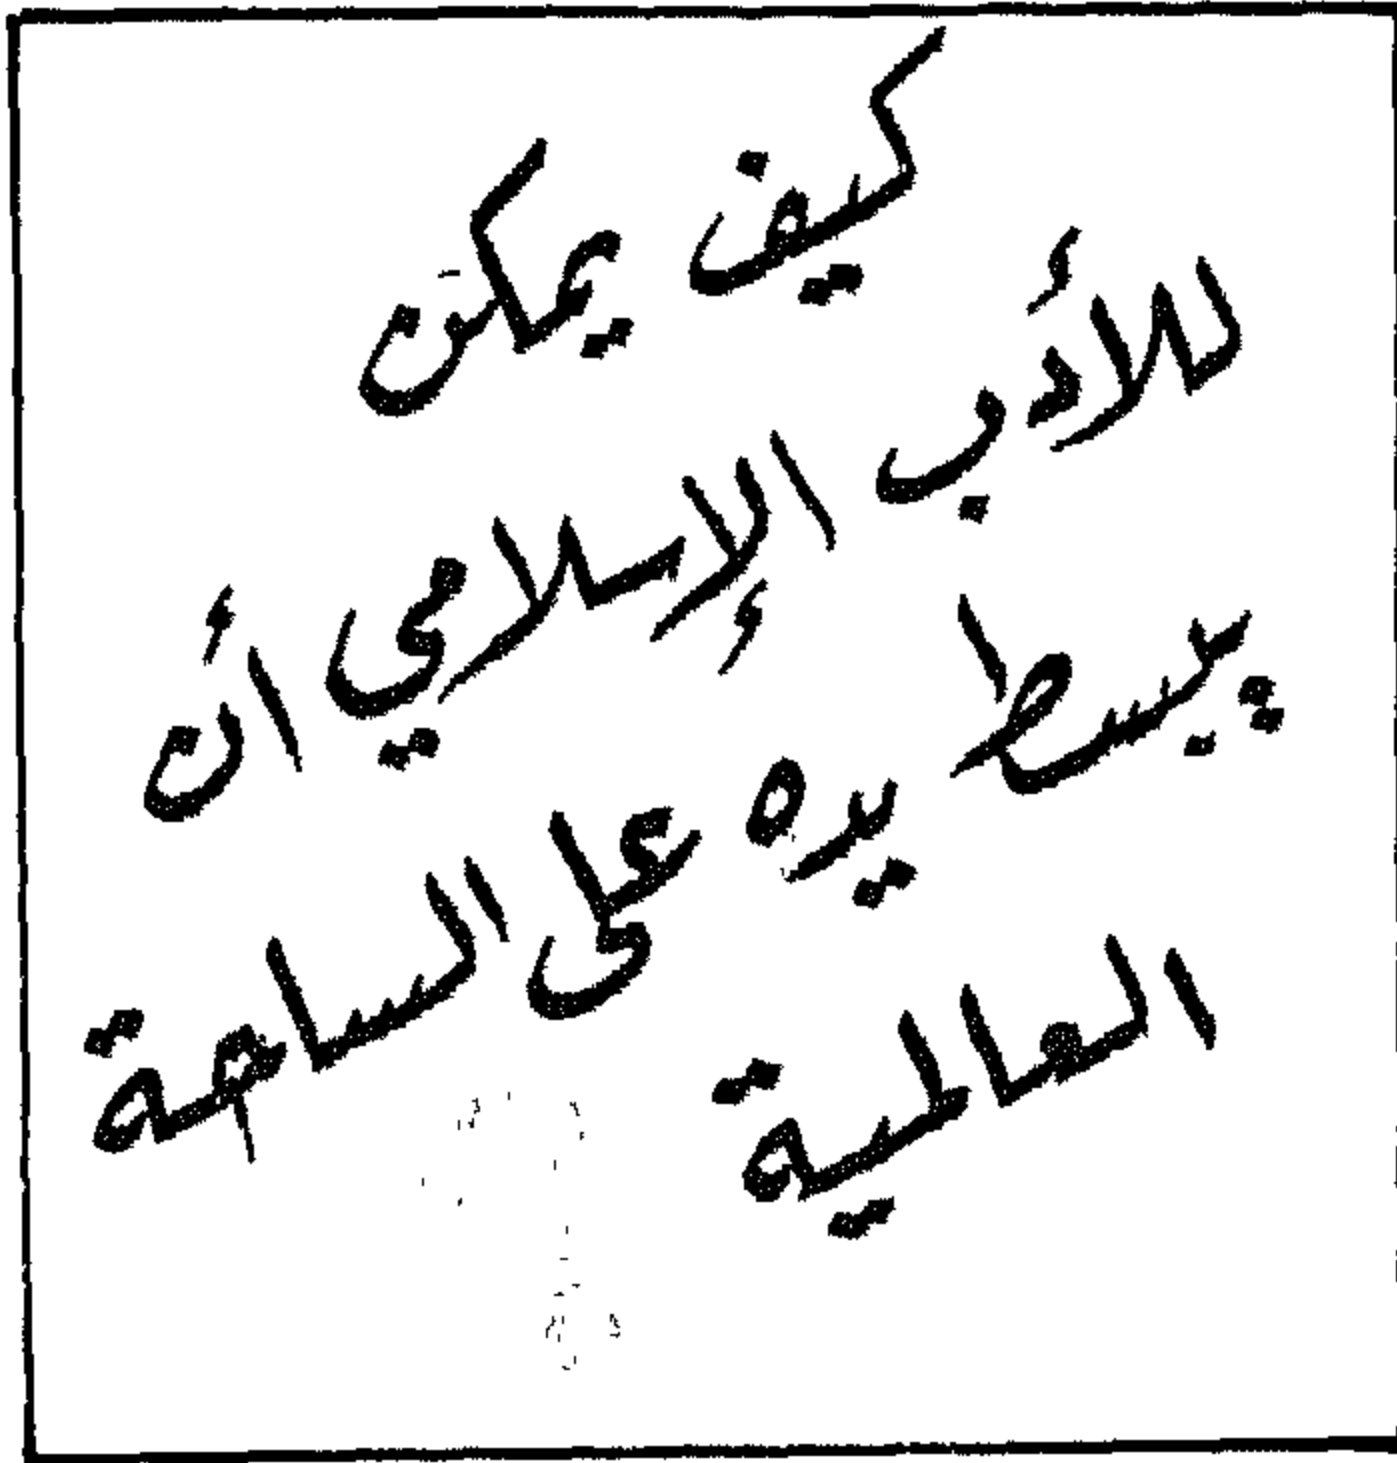 كيف يمكن
للأدب الإسلامي أن
يبسط يده على الساحة
العالمية